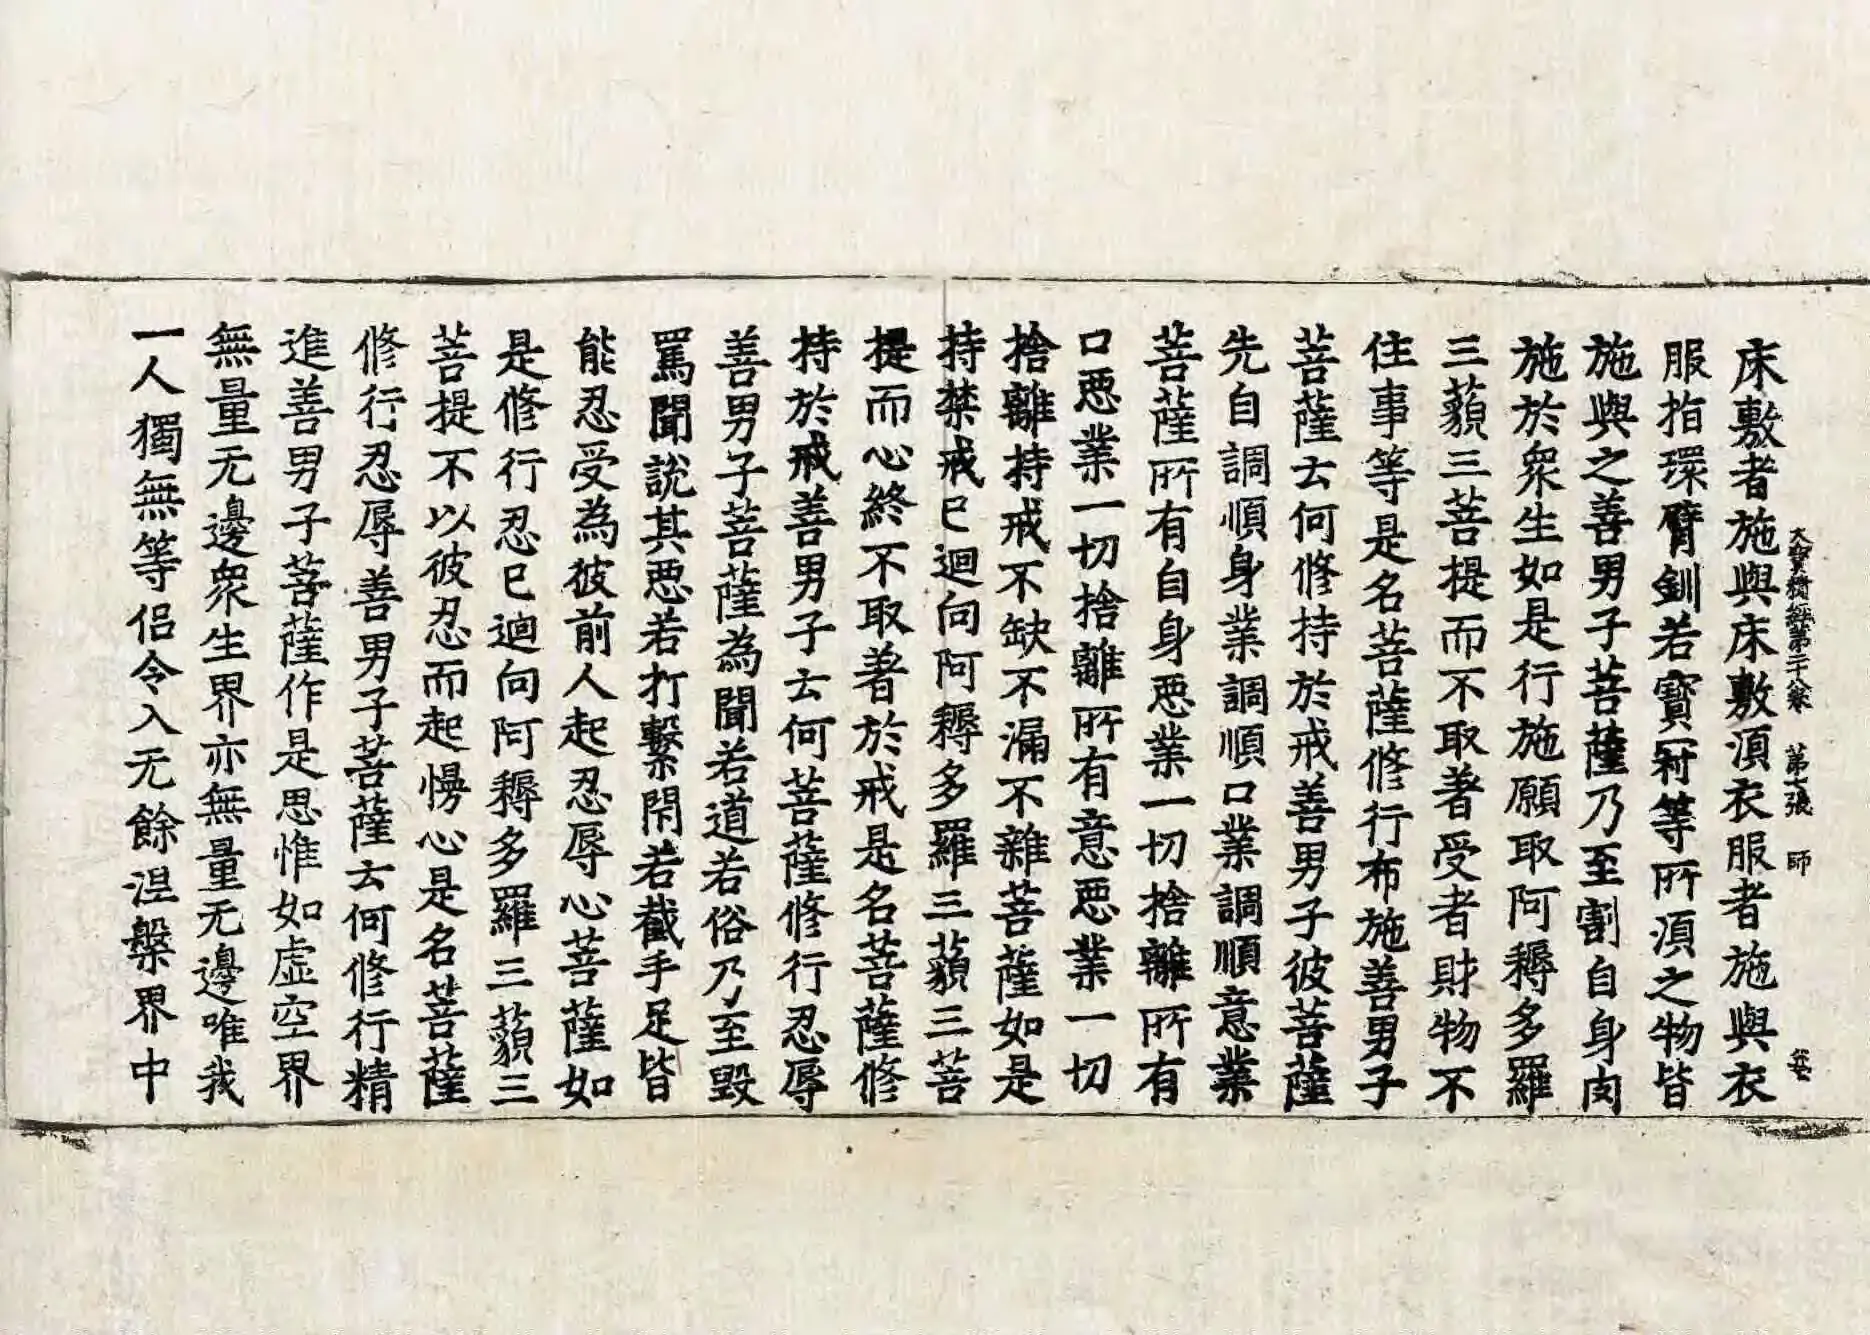 大寶積經第二十八卷 第七張 師
床敷者施與床敷須衣服者施與衣
服指環臂釧若寶冠等所須之物皆
施與之善男子菩薩乃至割自身肉
施於衆生如是行施願取阿耨多羅
三藐三菩提而不取著受者財物不
住事等是名菩薩修行布施善男子
菩薩云何修持於戒善男子彼菩薩
先自調順身業調順口業調順意業
菩薩所有自身惡業一切捨離所有
口惡業一切捨離所有意惡業一切
捨離持戒不缺不漏不雜菩薩如是
持禁戒已迴向阿耨多羅三藐三菩
提而心終不取著於戒是名菩薩修
持於戒善男子云何菩薩修行忍辱
善男子菩薩為聞若道若俗乃至毀
罵聞說其惡若打繫閇若截手足皆
能忍受為彼前人起忍辱心菩薩如
是修行忍已迴向阿耨多羅三藐三
菩提不以彼忍而起慢心是名菩薩
修行忍辱善男子菩薩云何修行精
進善男子菩薩作是思惟如虛空界
無量无邊衆生界亦無量无邊唯我
一人獨無等侶令入无餘涅槃界中